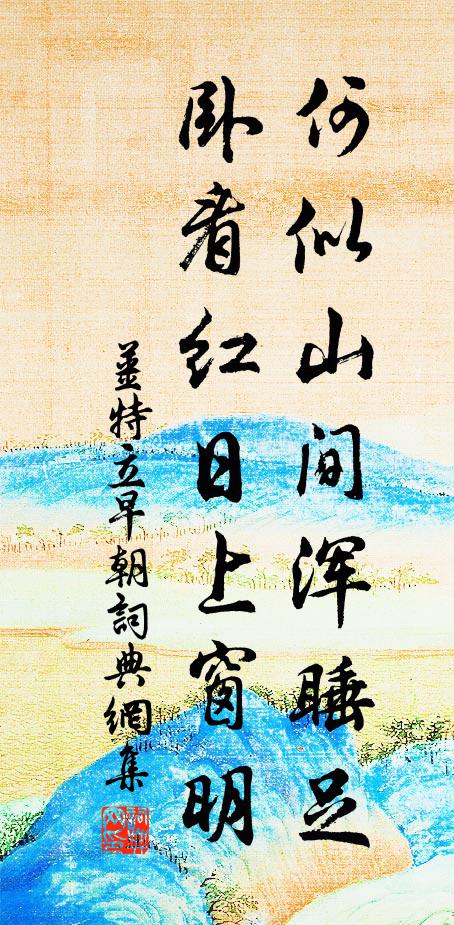 何似山间浑睡足
卧看红日上窗明
姜特立早朝詞典網集